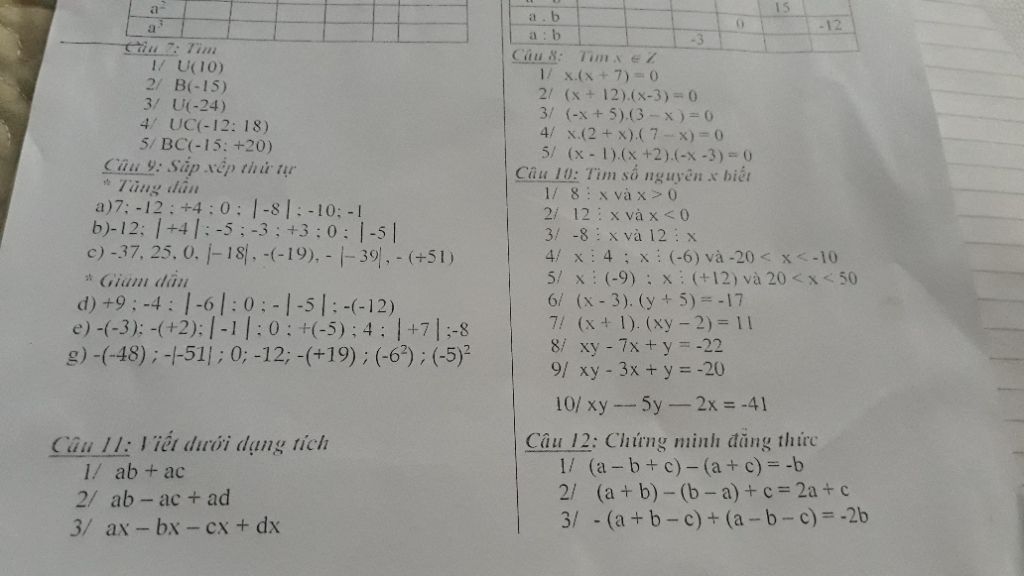 a²
a³
Câu 7: Tìm
1/ U(10)
2/ B(-15)
3/ U(-24)
4/ UC(-12; 18)
5/ BC(-15; +20)
Câu 9: Sắp xếp thứ tự
* Tăng dần
a)7; -12 ; +4 ; 0 ; | -8 | ; -10; -1
b)-12; | +4 | ; -5 ; -3 ; +3 ; 0 ; | -5 |
c) -37, 25, 0, |– 18|, -(-19), - |– 39|, - (+51)
* Giảm dần
d) +9 ; -4 ; | -6 | ; 0 ; - | -5 | ; -(-12)
e) -(-3); -(+2); | -1 | ; 0 ; +(-5) ; 4 ; | +7 | ;-8
g) -(-48) ; -|-51| ; 0; -12; -(+19) ; (-6²) ; (-5)²
Câu 11: Viết dưới dạng tích
1/ ab + ac
2/ ab – ac + ad
3/ ax – bx – cx + dx
15
a . b 0 -12
a : b -3
Câu 8: Tìm x ∈ Z
1/ x.(x + 7) = 0
2/ (x + 12).(x-3) = 0
3/ (-x + 5).(3 – x ) = 0
4/ x.(2 + x).( 7 – x) = 0
5/ (x - 1).(x +2).(-x -3) = 0
Câu 10: Tìm số nguyên x biết
1/ 8 ⋮ x và x > 0
2/ 12 ⋮ x và x < 0
3/ -8 ⋮ x và 12 ⋮ x
4/ x ⋮ 4 ; x ⋮ (-6) và -20 < x < -10
5/ x ⋮ (-9) ; x ⋮ (+12) và 20 < x < 50
6/ (x - 3). (y + 5) = -17
7/ (x + 1). (xy – 2) = 11
8/ xy - 7x + y = -22
9/ xy - 3x + y = -20
10/ xy — 5y — 2x = -41
Câu 12: Chứng minh đẳng thức
1/ (a – b + c) – (a + c) = -b
2/ (a + b) – (b – a) + c = 2a + c
3/ - (a + b – c) + (a – b – c) = -2b